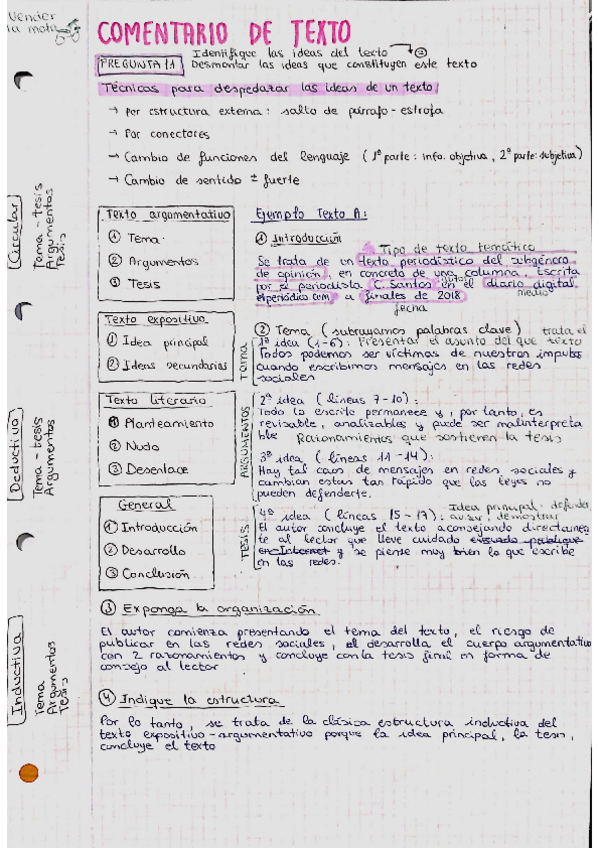 Vender
la moto
COMENTARIO DE TEXTO
PREGUNTA 1
Identifique las ideas del texto → ②
Desmontar las ideas que constituyen este texto
Técnicas para despedazar las ideas de un texto
→ Por estructura externa: salto de párrafo - estrofa
→ Por conectores
→ Cambio de funciones del lenguaje (1ª parte: info. objetiva, 2ª parte: subjetiva)
→ Cambio de sentido ± fuerte
Circular
Tema - tesis
Argumentos
Tesis
Deductiva
Tema - tesis
Argumentos
Inductiva
Tema
Argumentos
Tesis
Texto argumentativo
① Tema
② Argumentos
③ Tesis
Texto expositivo
① Idea principal
② Ideas secundarias
Texto literario
① Planteamiento
② Nudo
③ Desenlace
General
① Introducción
② Desarrollo
③ Conclusión
Ejemplo Texto A:
① Introducción
Tipo de texto temático
Se trata de un texto periodístico del subgénero
de opinión, en concreto de una columna. Escrita
por el periodista C. Santos en el diario digital
elperiódico.com a finales de 2018
medio
fecha
② Tema (subrayamos palabras clave) trata el
1ª idea (1-6): Presentar el asunto del que texto
Todos podemos ser víctimas de nuestros impulsos
cuando escribimos mensajes en las redes
sociales
TEMA
2ª idea (líneas 7-10):
Todo lo escrito permanece y, por tanto, es
revisable, analizable y puede ser malinterpreta
ble Razonamientos que sostienen la tesis
3ª idea (líneas 11-14):
Hay tal caos de mensajes en redes sociales y
cambian estas tan rápido que las leyes no
pueden defenderte.
ARGUMENTOS
Idea principal - defender,
4ª idea (líneas 15-17): avisar, demostrar
El autor concluye el texto aconsejando directamen
te al lector que lleve cuidado cuando publique
en Internet y se piense muy bien lo que escribe
en las redes.
TESIS
③ Exponga la organización
El autor comienza presentando el tema del texto, el riesgo de
publicar en las redes sociales, el desarrolla el cuerpo argumentativo
con 2 razonamientos y concluye con la tesis final en forma de
consejo al lector
④ Indique la estructura
Por lo tanto, se trata de la clásica estructura inductiva del
texto expositivo-argumentativo porque la idea principal, la tesis,
concluye el texto